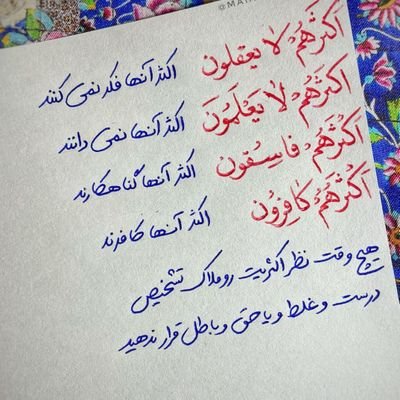 @MAH
أَكثَرُهُمْ لا يَعقلون اکثر آنها فکر نمی کنند
أَكثَرُهُمْ لا يَعْلَمُونَ اکثر آنها نمی دانند
أَكْثَرُهُم فاسِقون اکثر آنها گناهکارند
أَكْثَرُهُمُ كافِرُون اکثر آنها کافرند
هیچ وقت نظر اکثریت رو ملاک تشخیص
درست و غلط و یا حق و باطل قرار ندهید